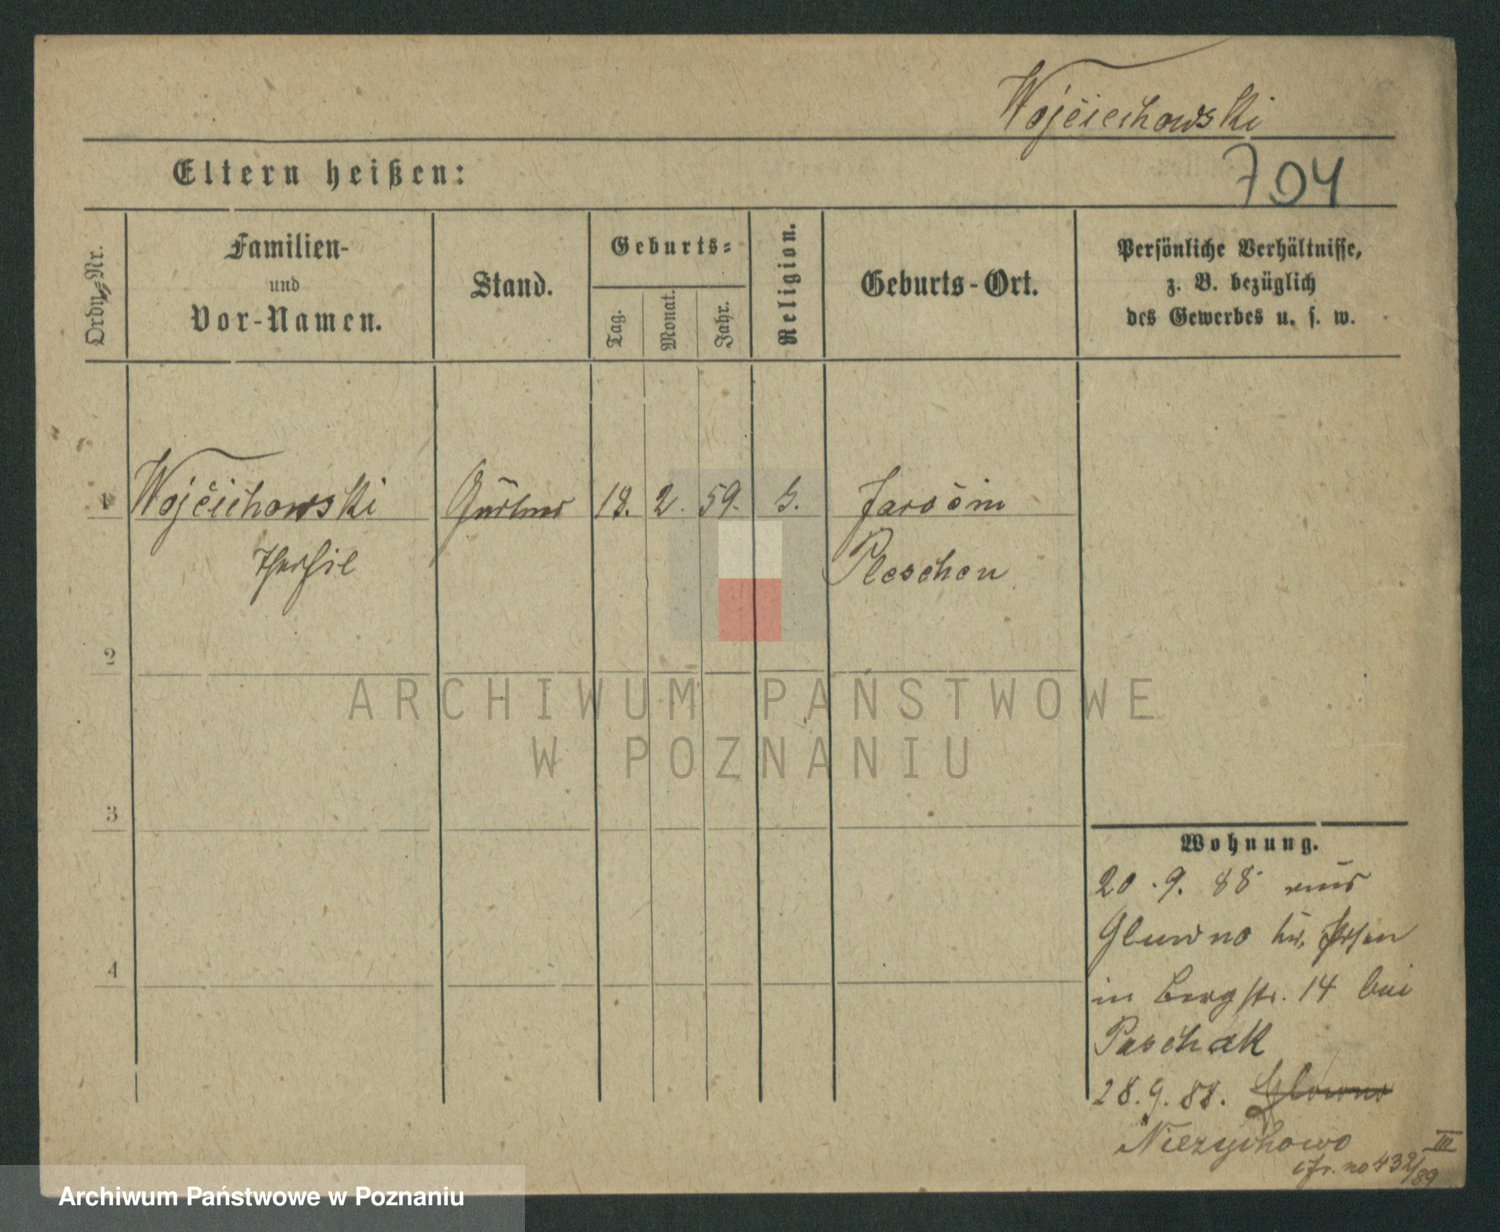 Wojciechowski
Eltern heißen:
704
Ordn.-Nr.
Familien-
und
Vor-Namen.
Stand.
Geburts-
Tag.
Monat.
Jahr.
Religion.
Geburts-Ort.
Persönliche Verhältnisse,
z. B. bezüglich
des Gewerbes u. s. w.
1
Wojciechowski
Gärtner
18. 2. 59.
Jarocin
Pleschen
2
3
4
ARCHIWUM PAŃSTWOWE
W POZNANIU
Wohnung.
20. 9. 88 aus
Gluwno kr. Posen
in Bergstr. 14 bei
Paschak
28. 9. 88. Glowno
Niezychowo
III
cfr. no 432/89
Archiwum Państwowe w Poznaniu